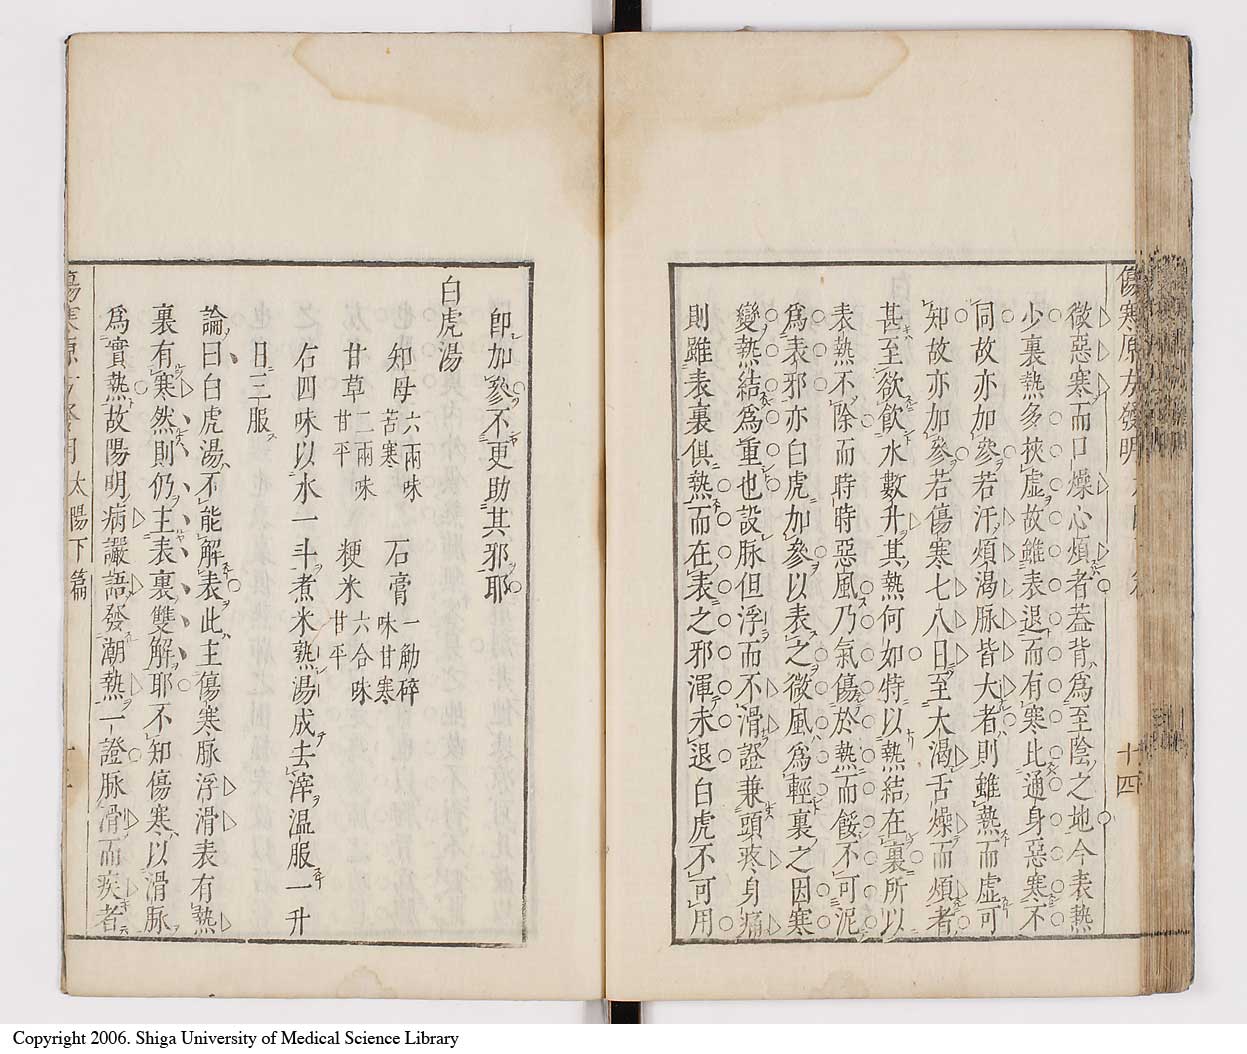 微惡寒而口燥心煩者葢背爲至陰之地今表熱
少裏熱多挾虛故雖表退而有寒比通身惡寒不
同故亦加參若汗煩渴脉皆大者則雖熱而虛可
知故亦加參若傷寒七八日至大渴舌燥而煩者
甚至欲飲水數升其熱何如特以熱結在裏所以
表熱不除而時時惡風乃氣傷於熱而餒不可泥
爲表邪亦白虎加參以表之微風爲輕裏之因寒
變熱結爲重也設脉但浮而不滑證兼頭疼身痛
則雖表裏俱熱而在表之邪渾未退白虎不可用
十四
卽加參不更助其邪耶
白虎湯
知母 六兩味苦寒 石膏 一觔碎味甘寒
甘草 二兩味甘平 粳米 六合味甘平
右四味以水一斗煮米熟湯成去滓温服一升
日三服
論曰白虎湯不能解表此主傷寒脉浮滑表有熱
裏有寒然則仍主表裏雙解耶不知傷寒以滑脉
爲實熱故陽明病讝語發潮熱一證脉滑而疾者
太陽下篇
Copyright 2006. Shiga University of Medical Science Library